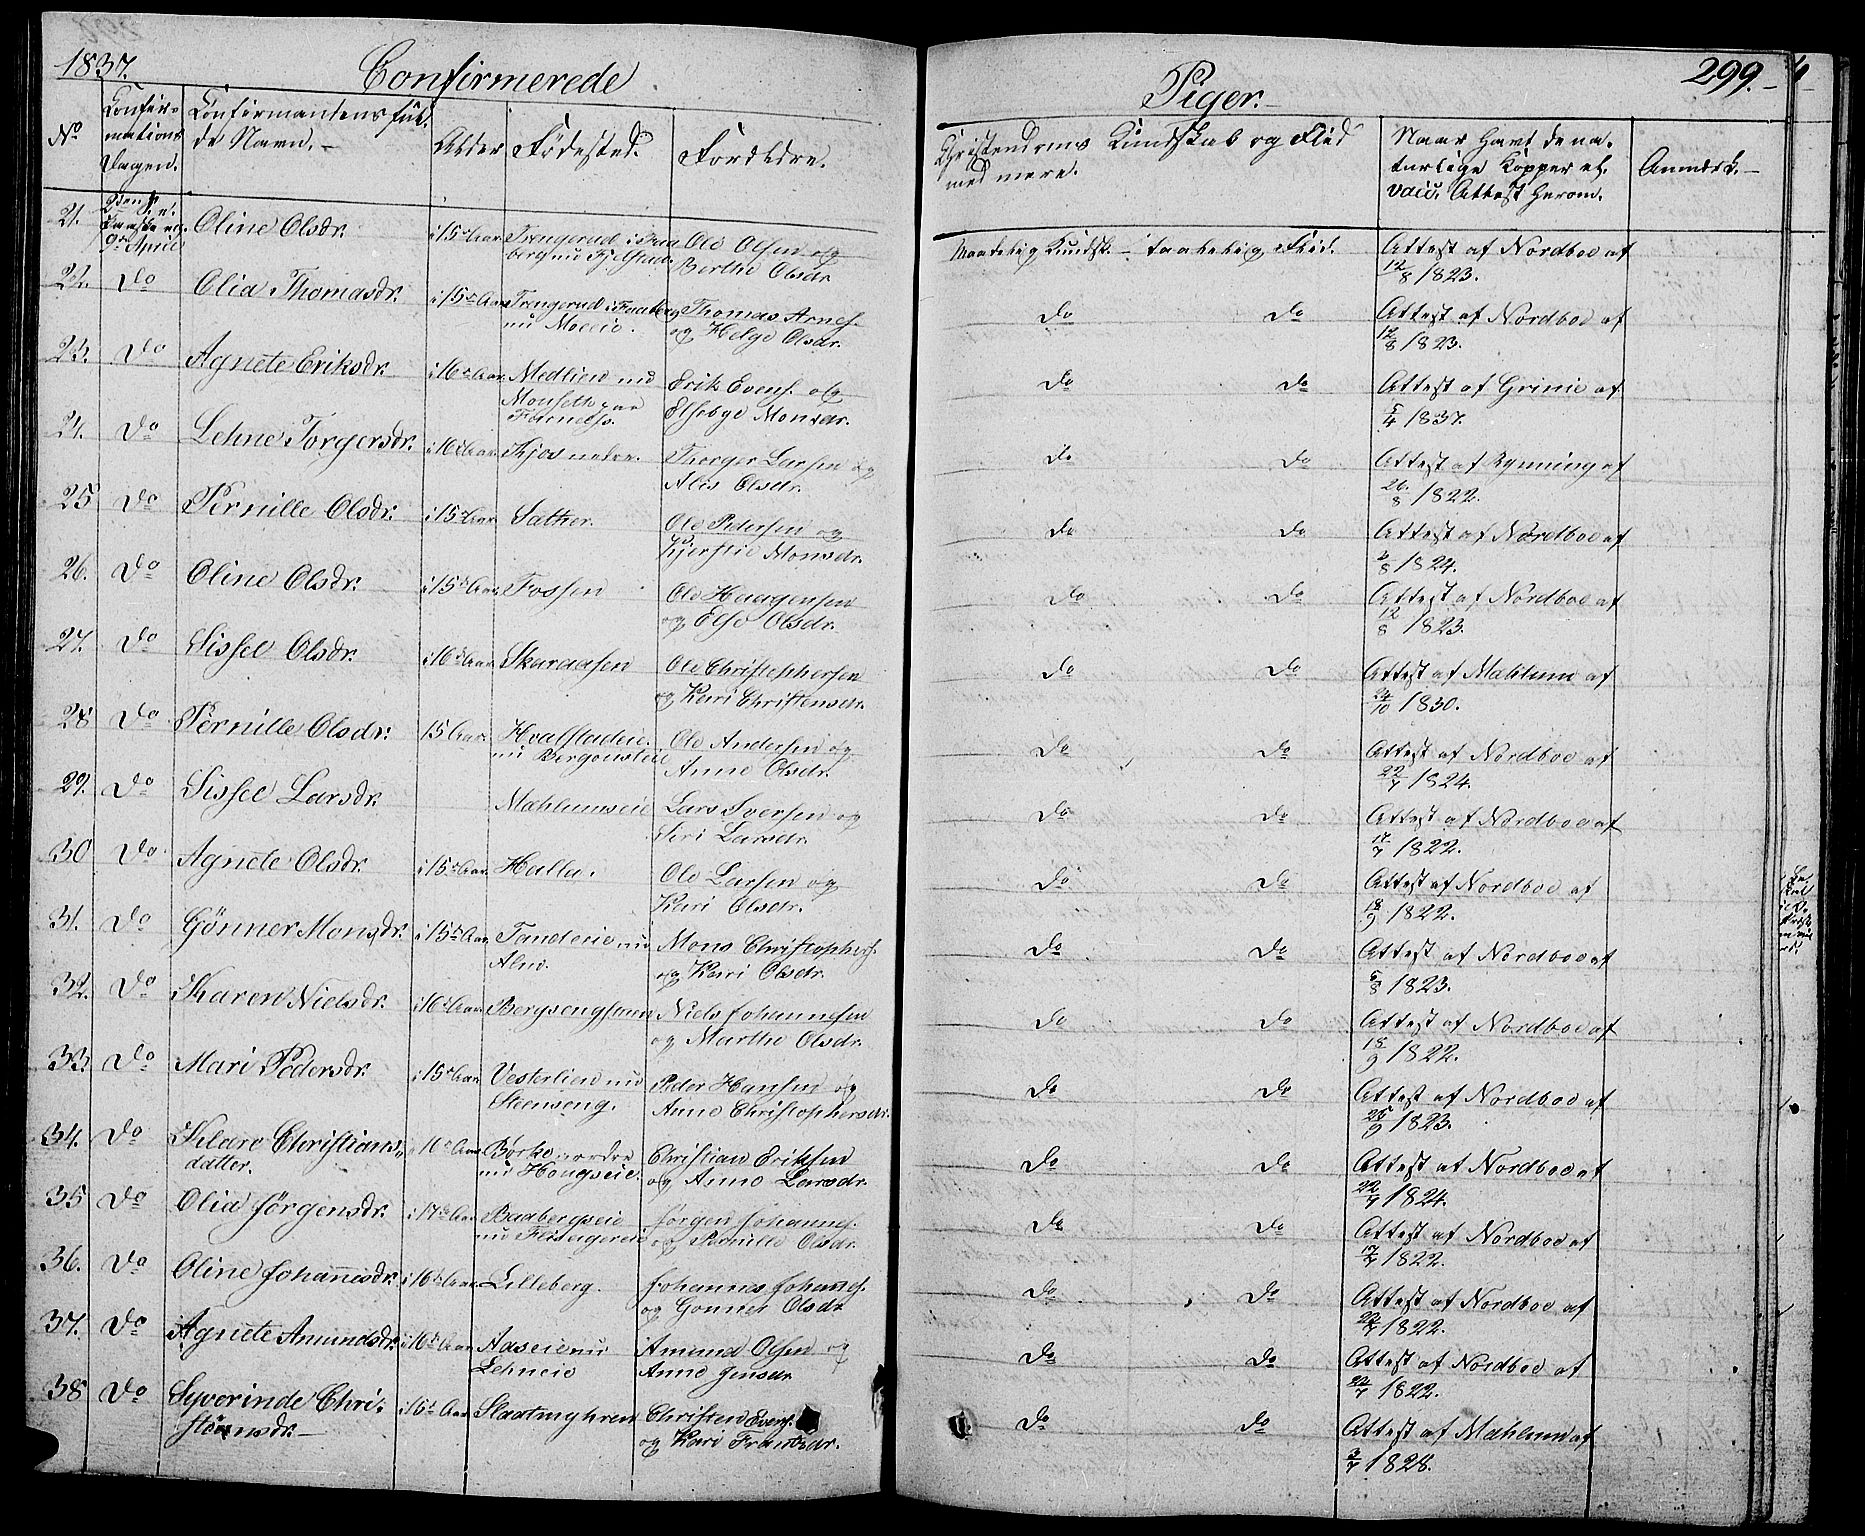 1837. Confirmerede Piger. 299.
No Confirmations Dagen. Confirmantens fulde Navn. Alder Fødested. Forældre. Christendoms Kundskab og Flid med mere. Naar havt de naturlige Kopper el. vacc. Attest herom. Anmærk.
21. 9de April Oline Olsdr. i 15de Aar Ole Olsen og Berthe Olsdr. Maadelig Kundsk. taalelig Flid. Attest af Nordboe af 12/8 1823.
22. Do Olia Thomasdr. i 15de Aar Trengerud i Faaberg nu Moeeie. Thomas Arnes. og Helge Olsdr. Do Do Attest af Nordboe af 12/8 1823.
23. Do Agnete Eriksdr. i 16de Aar Medlien nu Monseth paa Erik Evens. og Elsebye Monsdr. Do Do Attest af Grinie af 5/4 1837.
24. Do Lehne Torgersdr. i 16de Aar Kjos nedre. Thorger Larsen og Alis Olsdr. Do Do Attest af Rynning af 26/8 1822.
25 Do Pernille Olsdr. i 15de Aar Sather. Ole Pedersen og Kjerstie Monsdr. Do Do Attest af Nordboe af 2/8 1824.
26. Do Oline Olsdr. i 15de Aar Fossen Ole Haagensen og Else Olsdr. Do Do Attest af Nordboe af 12/8 1823.
27. Do Sissel Olsdr. i 16de Aar Skaraasen Ole Christophersen og Kari Christensdr. Do Do Attest af Mæhlum af 24/10 1830.
28 Do Pernille Olsdr. 15 Aar Hvalstadeie nu Bergonseie Ole Andersen og Anne Olsdr. Do Do Attest af Nordboe af 22/7 1824.
29. Do Sissel Larsdr. Mæhlumseie Lars Iversen og Siri Larsdr. Do Do Attest af Nordboe af 17/7 1822.
30 Do Agnete Olsdr. i 15de Aar Halla. Ole Larsen og Kari Olsdr. Do Do Attest af Nordboe af 18/9 1822.
31. Do Gønner Monsdr. i 15de Aar Tandeeie nu Alm. Mons Christophers. og Kari Olsdr. Do Do Attest af Nordboe af 5/8 1823.
32. Do Karen Nielsdr. i 16de Aar Niels Johannesen og Marthe Olsdr. Do Do Attest af Nordboe af 18/9 1822.
33. Do Mari Pedersdr. i 15de Aar Vesterlien nu Steenseng. Peder Hansen og Anne Christophersdr. Do Do Attest af Nordboe af 25/9 1823.
34. Do Christiansdatter. Børke nordre nu Hongseie. Christian Eriksen og Anne Larsdr. Do Do Attest af Nordboe af 22/7 1824.
35 Do Olia Jørgensdr. i 17de Aar Baabergseie nu Flisagereie Jørgen Johannes. og Pernille Olsdr. Do Do Attest af Nordboe af 17/7 1822.
36. Do Oline Johannisdr. i 16de Aar Lilleberg. Johannes Johannes. og Gonner Olsdr. Do Do Attest af Nordboe af 24/7 1822.
37. Do Agnete Amundsdr. i 16de Aar Aaseie nu Lehneie Amund Olsen og Anne Jensdr. Do Do Attest af Nordboe af 24/7 1822.
38 Do Syverinde Christiansdr. i 16de Aar Slaatmyhren Christen Evens. og Kari Frantsdr. Do Do Attest af Mæhlum af 3/7 1828.